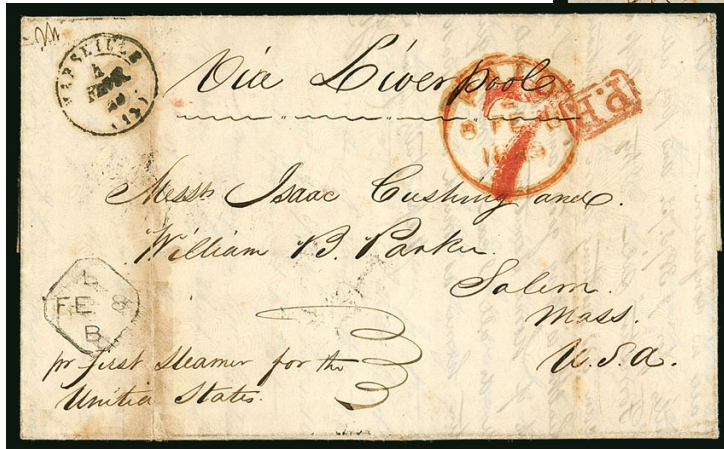 MARSEILLE
4
FEVR
49
(12)
Via Liverpool
PAID
8 FE 8
1849
P.P.
7
Messrs Isaac Cushing and
William B. Parker
Salem
Mass.
U.S.A.
L
FE 8
B
pr first steamer for the
United States.